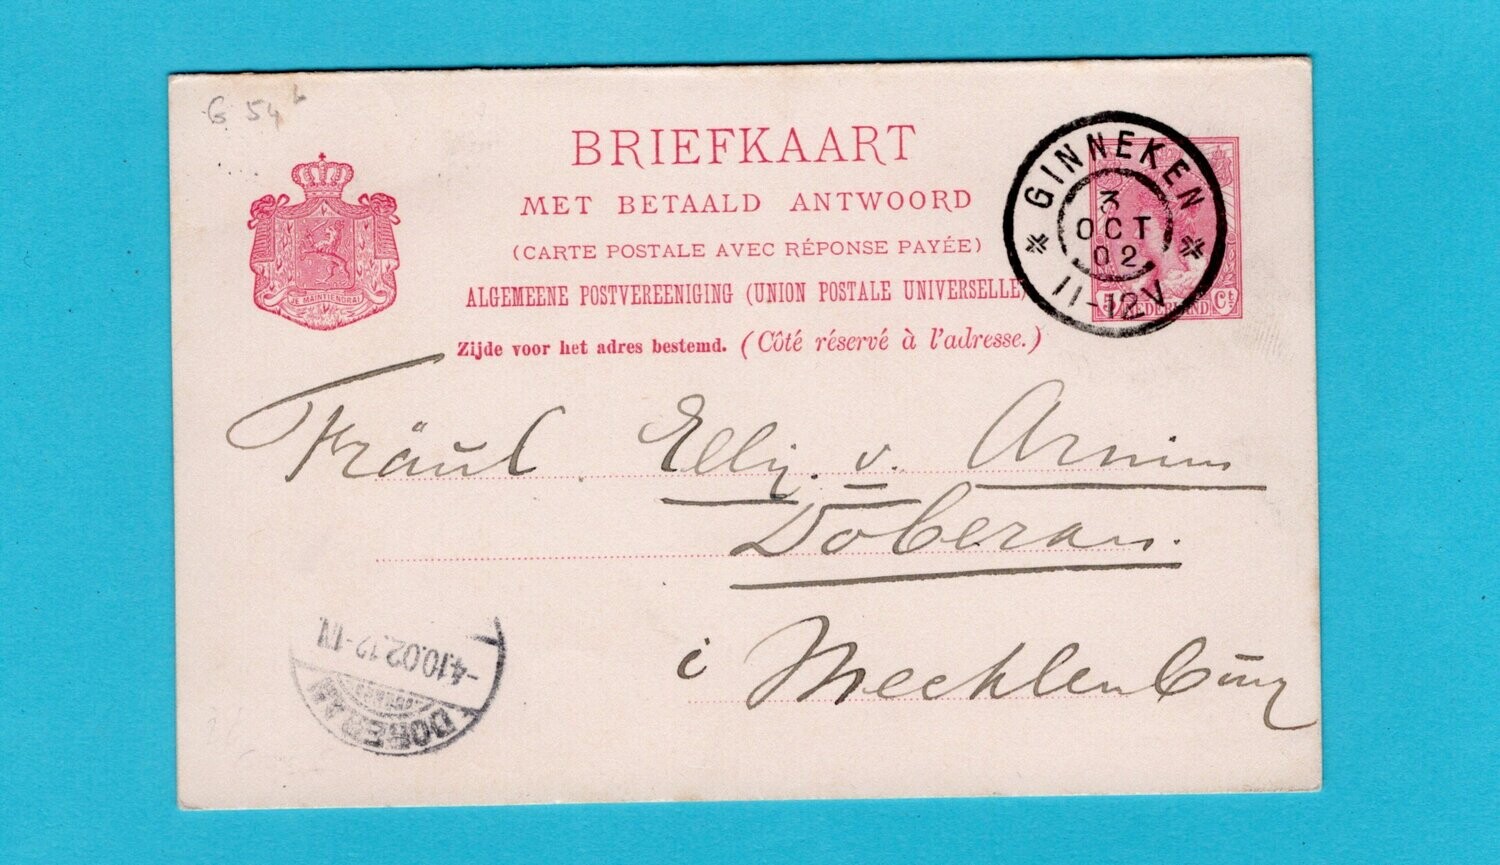 G 54 b
BRIEFKAART
MET BETAALD ANTWOORD
(CARTE POSTALE AVEC RÉPONSE PAYÉE)
ALGEMEENE POSTVEREENIGING (UNION POSTALE UNIVERSELLE)
Zijde voor het adres bestemd. (Côté réservé à l'adresse.)
JE MAINTIENDRAI
GINNEKEN
3
OCT
02
11-12V
5 NEDERLAND Ct
Fräul Elly. v. Arnim
Doberan.
i Mecklenburg
-4.10.02.12-1N
DOBERAN